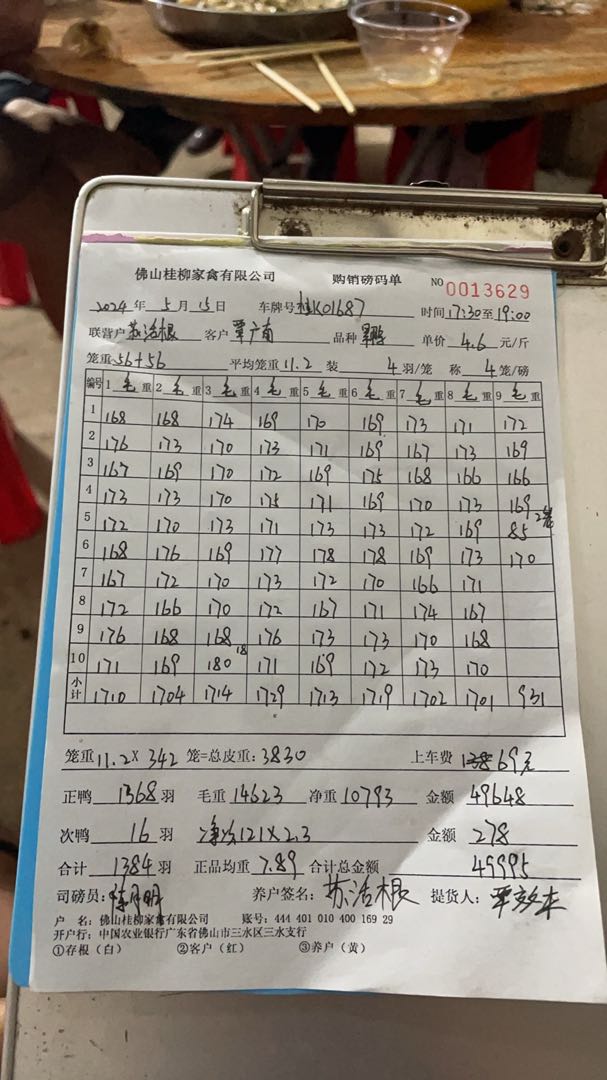 佛山桂柳家禽有限公司 购销磅码单 NO 0013629
2024年 5月 15日 车牌号 桂K01687 时间 17:30至19:00
联营户 苏浩根 客户 覃广南 品种 单价 4.6 元/斤
笼重 56+56 平均笼重 11.2 装 4 羽/笼 称 4 笼/磅
编号 1 毛 重 2 毛 重 3 毛 重 4 毛 重 5 毛 重 6 毛 重 7 毛 重 8 毛 重 9 毛 重
1 168 168 174 169 170 169 173 171 172
2 176 173 170 173 171 169 167 173 169
3 167 169 170 172 169 175 168 166 166
4 173 173 170 175 171 169 170 173 169
5 172 170 173 171 173 173 172 169 85 2笼
6 168 176 169 177 178 178 169 173 170
7 167 172 170 173 172 170 166 171
8 172 166 170 172 167 171 174 167
9 176 168 168 176 173 173 170 168
10 171 169 180 18 171 169 172 173 170
小计 1710 1704 1714 1729 1713 1719 1702 1701 931
笼重 11.2 X 342 笼=总皮重: 3830 上车费 69元
正鸭 1368 羽 毛重 14623 净重 10793 金额 49648
次鸭 16 羽 121X2.3 金额 278
合计 1384 羽 正品均重 7.89 合计总金额 49995
司磅员: 养户签名: 苏浩根 提货人:
户 名: 佛山桂柳家禽有限公司 账号: 444 401 010 400 169 29
开户行: 中国农业银行广东省佛山市三水区三水支行
①存根（白） ②客户（红） ③养户（黄）